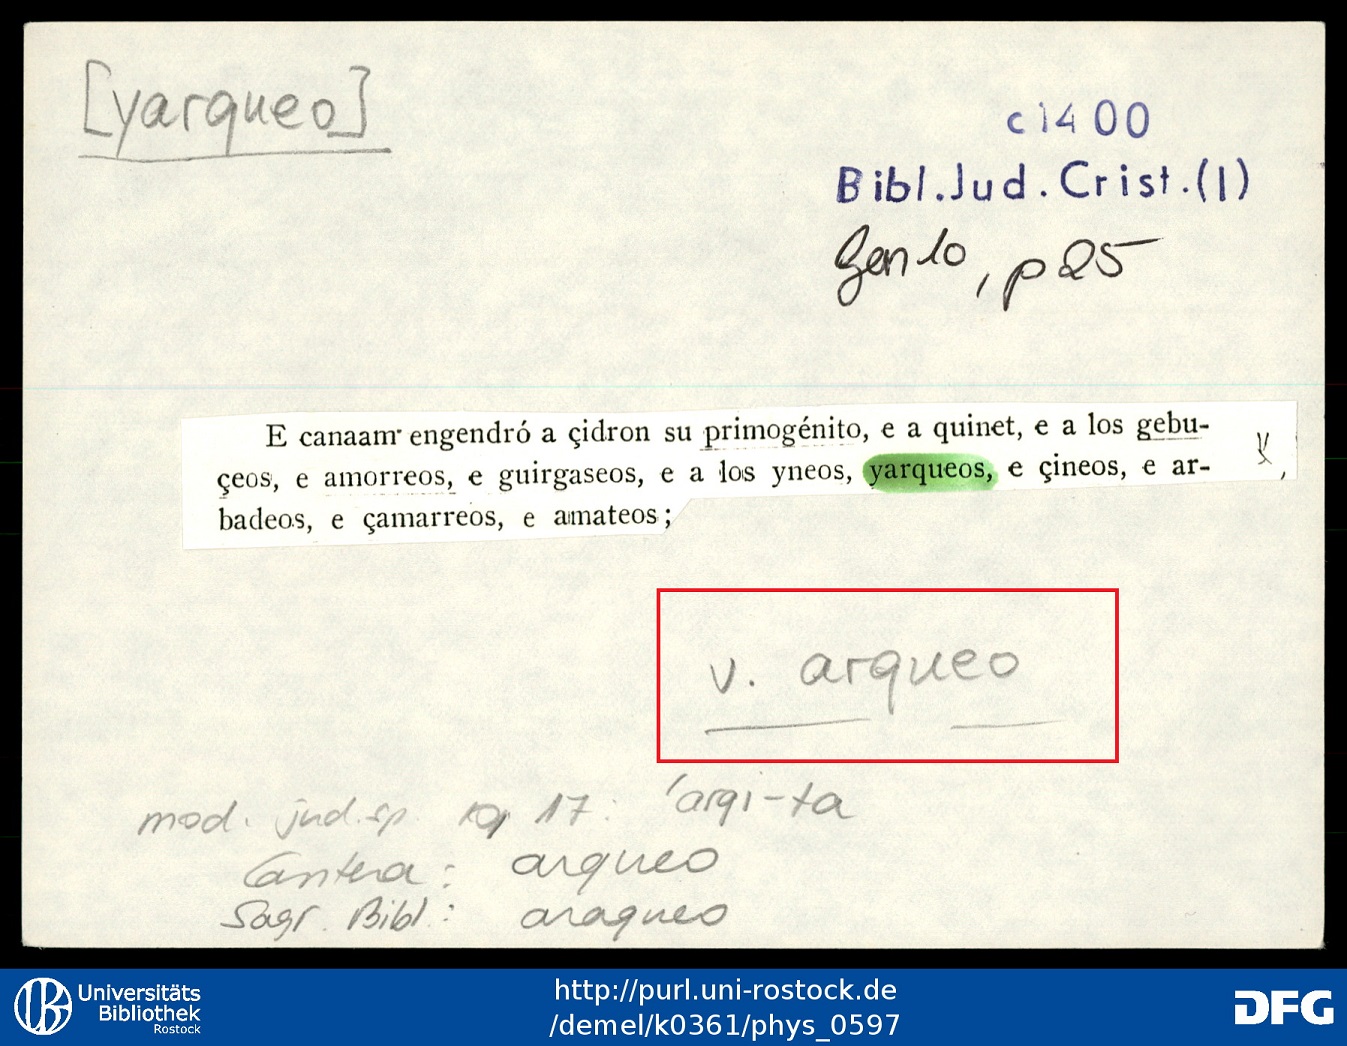 [yarqueo]
c1400
Bibl.Jud.Crist.(I)
Gen 10, p 25
E canaam engendró a çidron su primogénito, e a quinet, e a los gebu-
çeos, e amorreos, e guirgaseos, e a los yneos, yarqueos, e çineos, e ar-
badeos, e çamarreos, e amateos;
v. arqueo
mod. jud.sp. 10, 17: 'arqi-ta
Cantera: arqueo
Sagr. Bibl.: araqueo
Universitäts
Bibliothek
Rostock
http://purl.uni-rostock.de
/demel/k0361/phys_0597
DFG